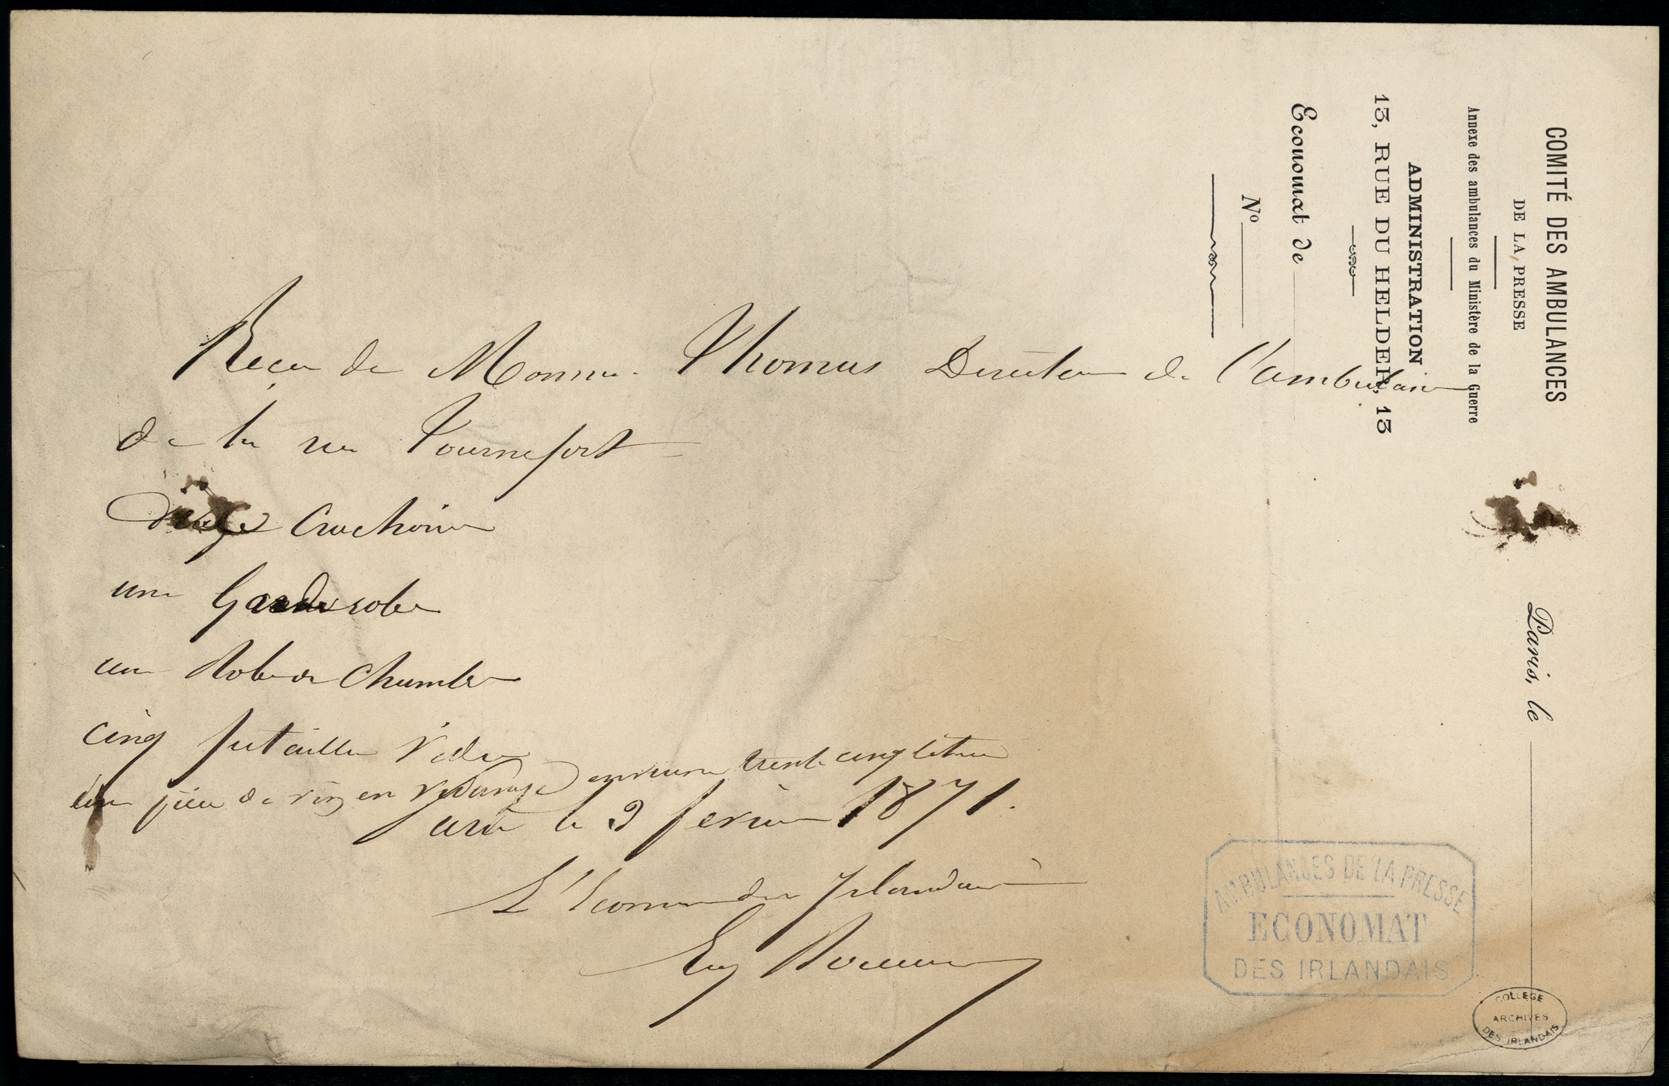 COMITÉ DES AMBULANCES
DE LA PRESSE
Annexe des ambulances du Ministère de la Guerre
ADMINISTRATION
13, RUE DU HELDER, 13
Economat de
No
Paris, le
Reçu de Monsieur Thomas Directeur de l'ambulance
de la rue Tournefort
Crachoirs
une Garde robe
une Robe de Chambre
cinq futailles vides
une pièce de vin en vidange environ trente cinq litres
Paris le 9 février 1871.
L'Econome des Irlandais
Eug
AMBULANCES DE LA PRESSE
ECONOMAT
DES IRLANDAIS
COLLEGE
ARCHIVES
DES IRLANDAIS